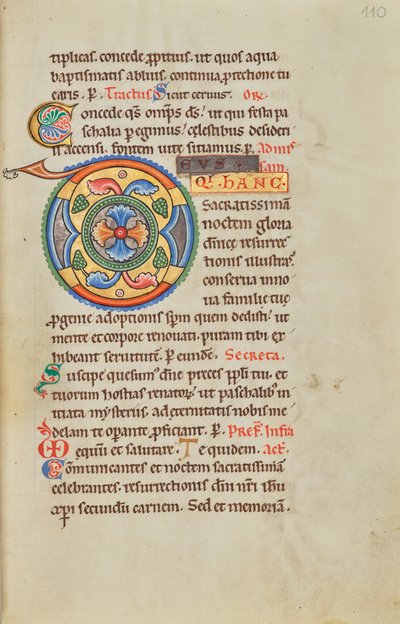 110
tiplicas. concede ꝓpitius. ut quos aqua
baptismatis abluis. continua ꝓtectione tu
earis. P. Tractus. Sicut ceruus. Oꝛ.
Concede qs omps ds! ut qui festa pa
schalia pegimus! celestibus desideri
is accensi. fontem uite sitiamus. P. Ad miss
EVS sam.
Qi hANC.
Sacratissimā
noctem gloria
dn̄icę resurre
tionis illustras.
conserua in no
ua familię tuę
ꝓgenie adoptionis sp̄m quem dedisti! ut
mente et corpore renouati. puram tibi ex
hibeant seruitutē. P eundē. Secreta.
Suscipe quesum dn̄e preces ppli tui. et
tuorum hostias renatoꝝ! ut paschalibus in
itiata mysteriis. ad eternitatis nobis me
delam te operante ꝓficiant. P. Pref. Infra
equū et salutare. Te quidem. act.
Communicantes et noctem sacratissimā
celebrantes. resurrectionis dn̄i nr̄i ihu
xpi secundū carnem. Sed et memoriā.